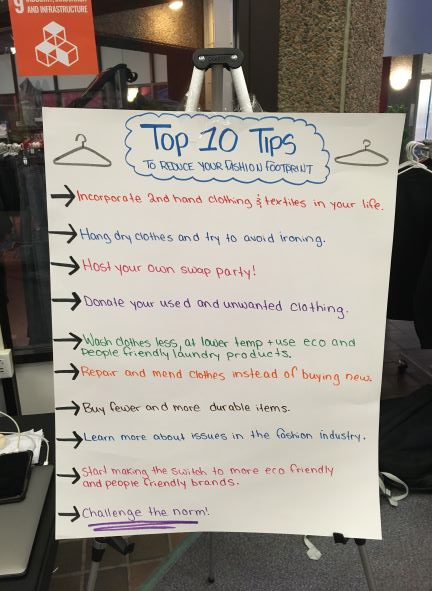 9 INDUSTRY, INNOVATION
AND INFRASTRUCTURE
Top 10 Tips
TO REDUCE YOUR FASHION FOOTPRINT
Incorporate 2nd hand clothing & textiles in your life.
Hang dry clothes and try to avoid ironing.
Host your own swap party!
Donate your used and unwanted clothing.
Wash clothes less, at lower temp + use eco and
people friendly laundry products.
Repair and mend clothes instead of buying new.
Buy fewer and more durable items.
Learn more about issues in the fashion industry.
Start making the switch to more eco friendly
and people friendly brands.
Challenge the norm!